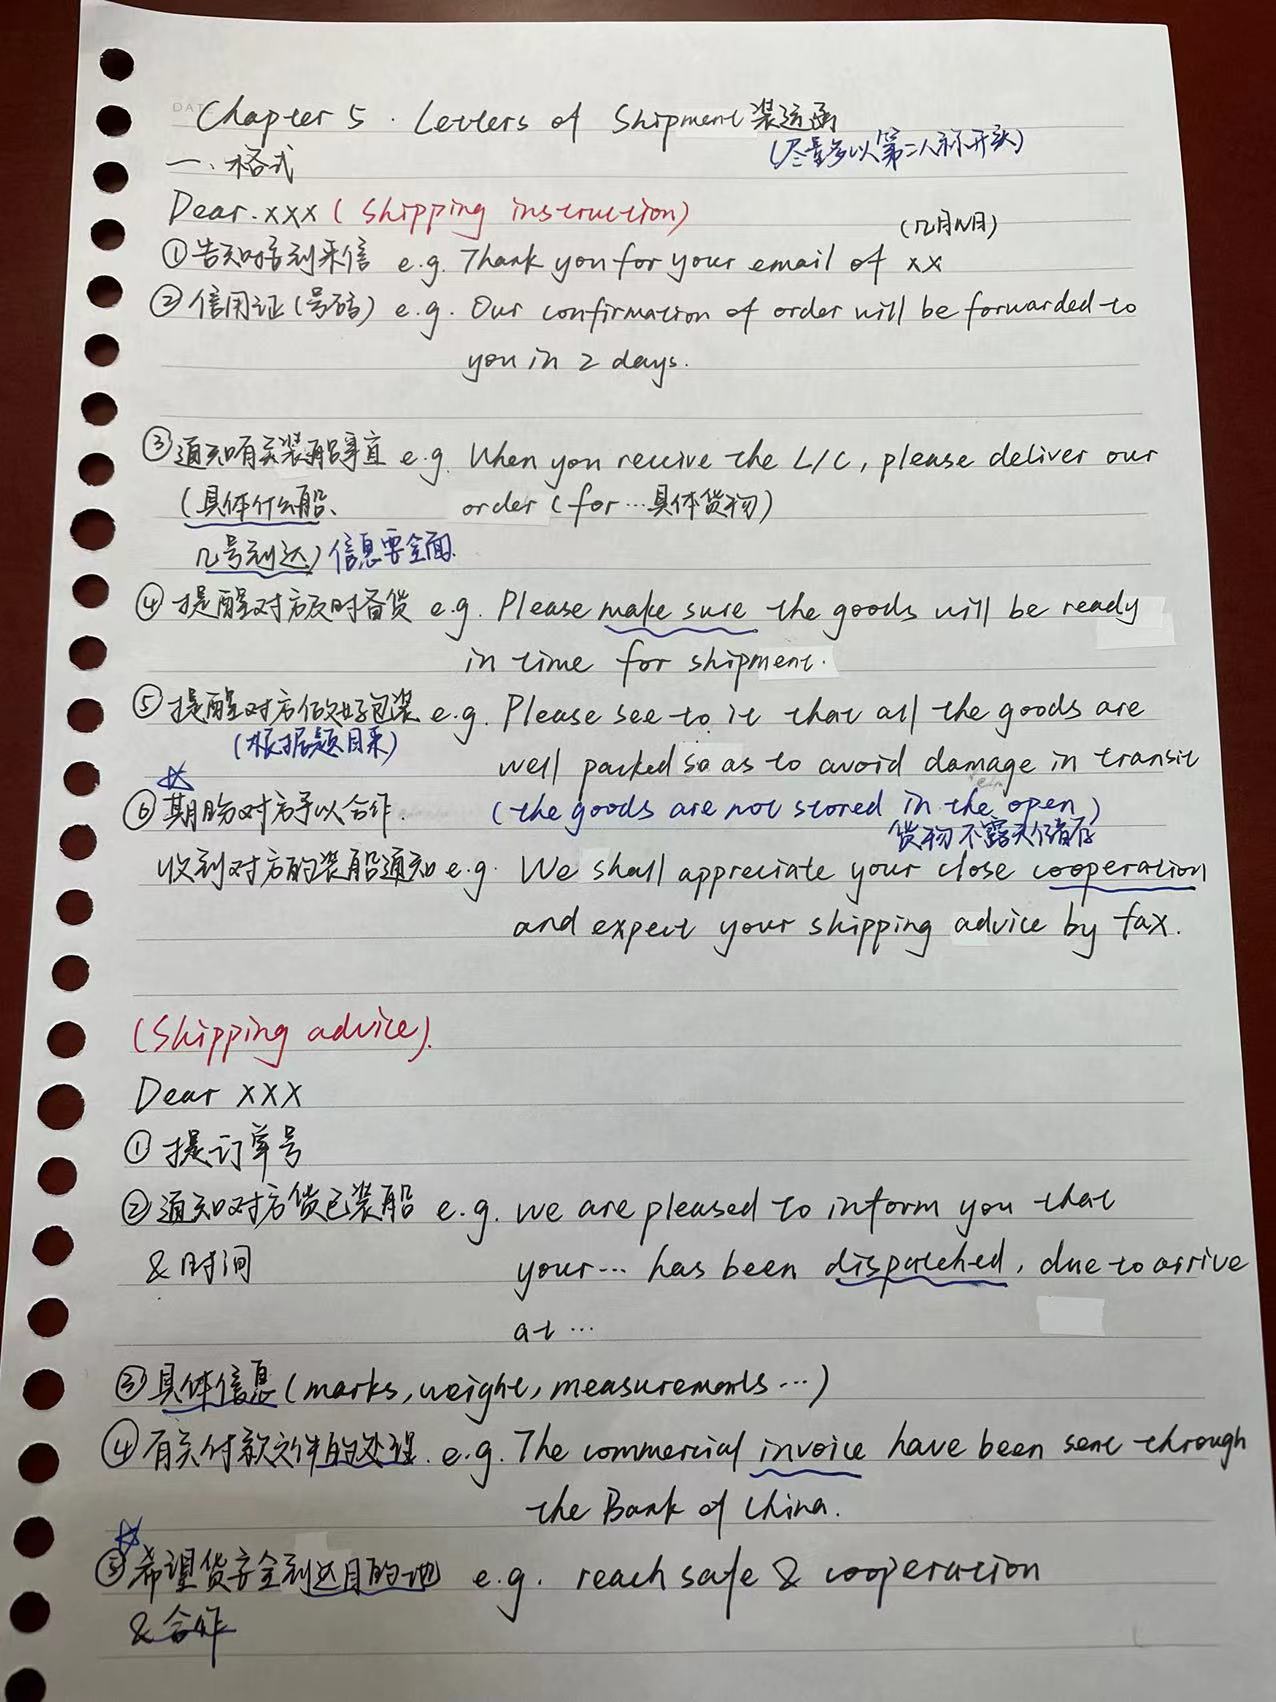 DAT
Chapter 5 . Letters of Shipment 装运函
(尽量多以第二人称开头)
一.格式
Dear. xxx (Shipping instruction)
(几月几日)
①告知对方收到来信 e.g. Thank you for your email of xx
②信用证(号码) e.g. Our confirmation of order will be forwarded to
you in 2 days.
③通知有关装船事宜 e.g. When you receive the L/C, please deliver our
(具体什么船、 order (for…具体货物)
几号到达) 信息要全面.
④提醒对方及时备货 e.g. Please make sure the goods will be ready
in time for shipment.
⑤提醒对方做好包装 e.g. Please see to it that all the goods are
(根据题目来) well packed so as to avoid damage in transit
☆
⑥期盼对方予以合作. (the goods are not stored in the open)
货物不露天储存
收到对方的装船通知 e.g. We shall appreciate your close cooperation
and expect your shipping advice by fax.
(Shipping advice).
Dear XXX
①提订单号
②通知对方货已装船 e.g. we are pleased to inform you that
&时间 your… has been dispatched, due to arrive
at …
③具体信息(marks, weight, measurements…)
④有关付款文件的处理. e.g. The commercial invoice have been sent through
the Bank of China.
☆
⑤希望货安全到达目的地 e.g. reach safe & cooperation
&合作